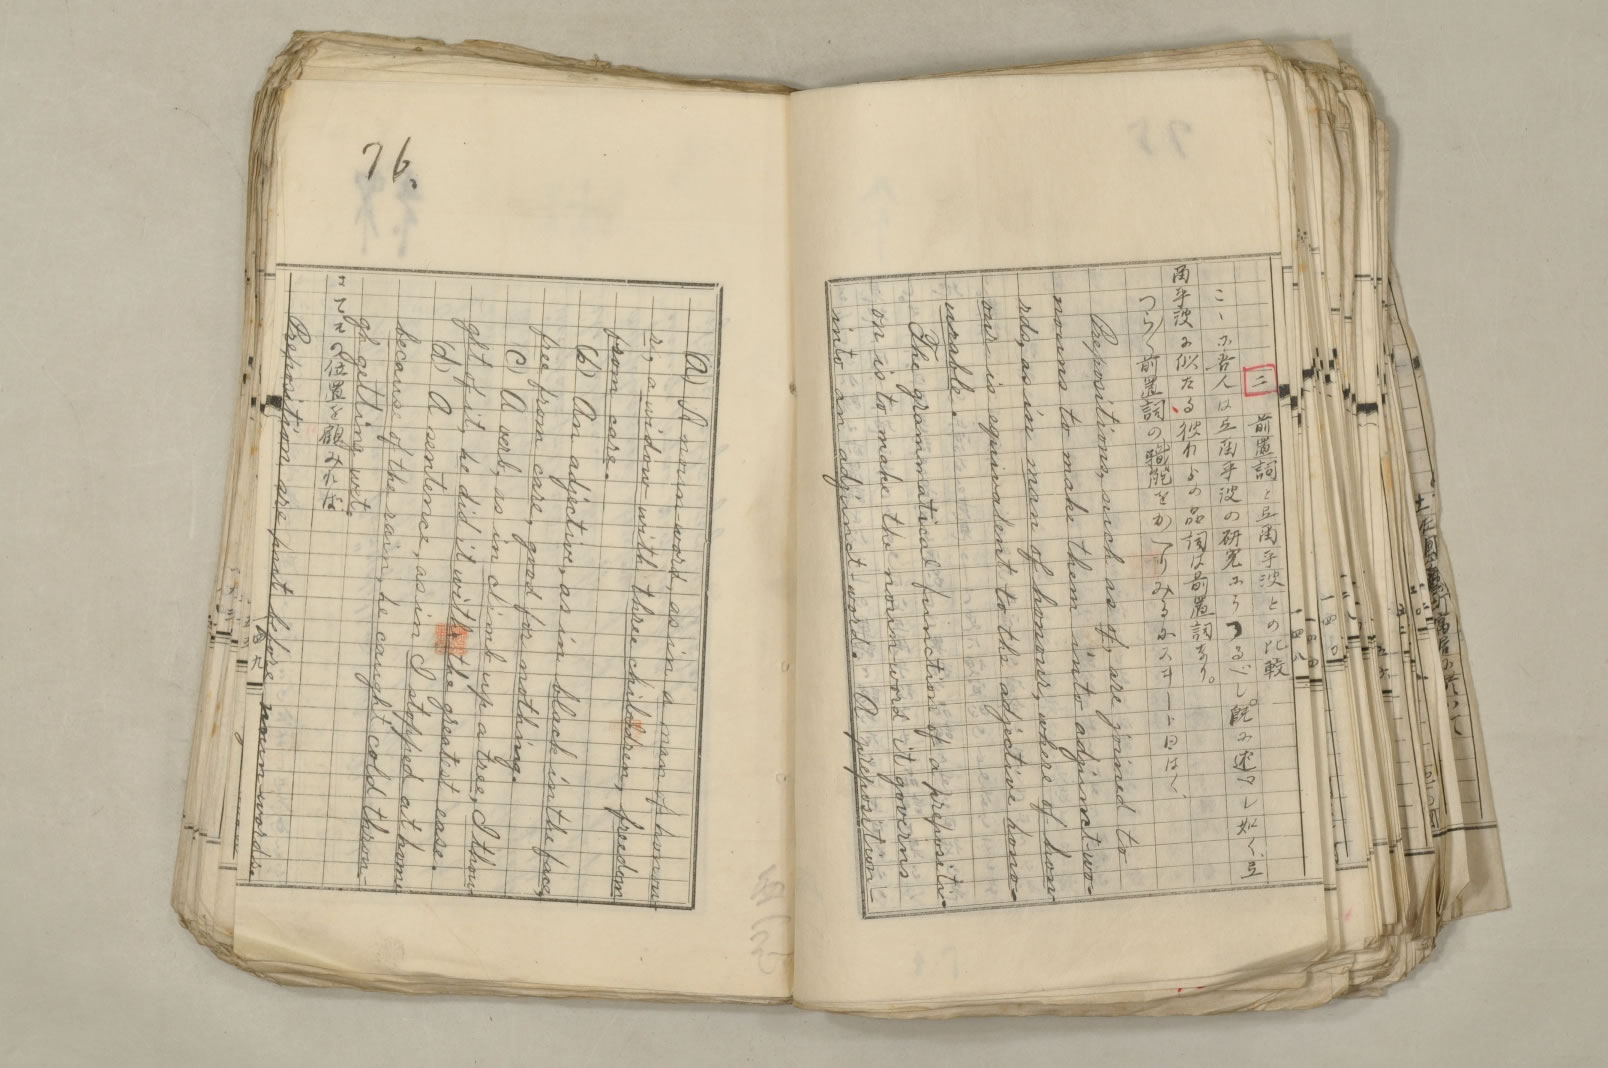 二 前置詞と弖爾乎波との比較
こゝに吾人は弖爾乎波の研究にうつるべし。既に述べし如く、弖
爾乎波に似たる彼れらの品詞は前置詞なり。
つらく前置詞の職能をかへりみるにスヰート曰はく、
Prepositions, such as of, are joined to
nouns to make them into adjunct-wo-
rds, as in man of honour, where of hon-
our is equivalent to the adjective hono-
urable.
The grammatical function of a prepositi-
on is to make the noun-word it governs
into an adjunct-word. A preposition-
76.
a) A noun word, as in a man of honou-
r, a widow with three children, freedom
from care.
b) An adjective, as in black in the face,
free from care, good for nothing.
c) A verb, as in climb up a tree, I thou-
ght of it, he did it with the greatest ease.
d) A sentence, as in I stopped at home
because of the rain, he caught cold throu-
gh getting wet.
さてその位置を顧みれば
Prepositions are put before noun-words
一四八
一四九